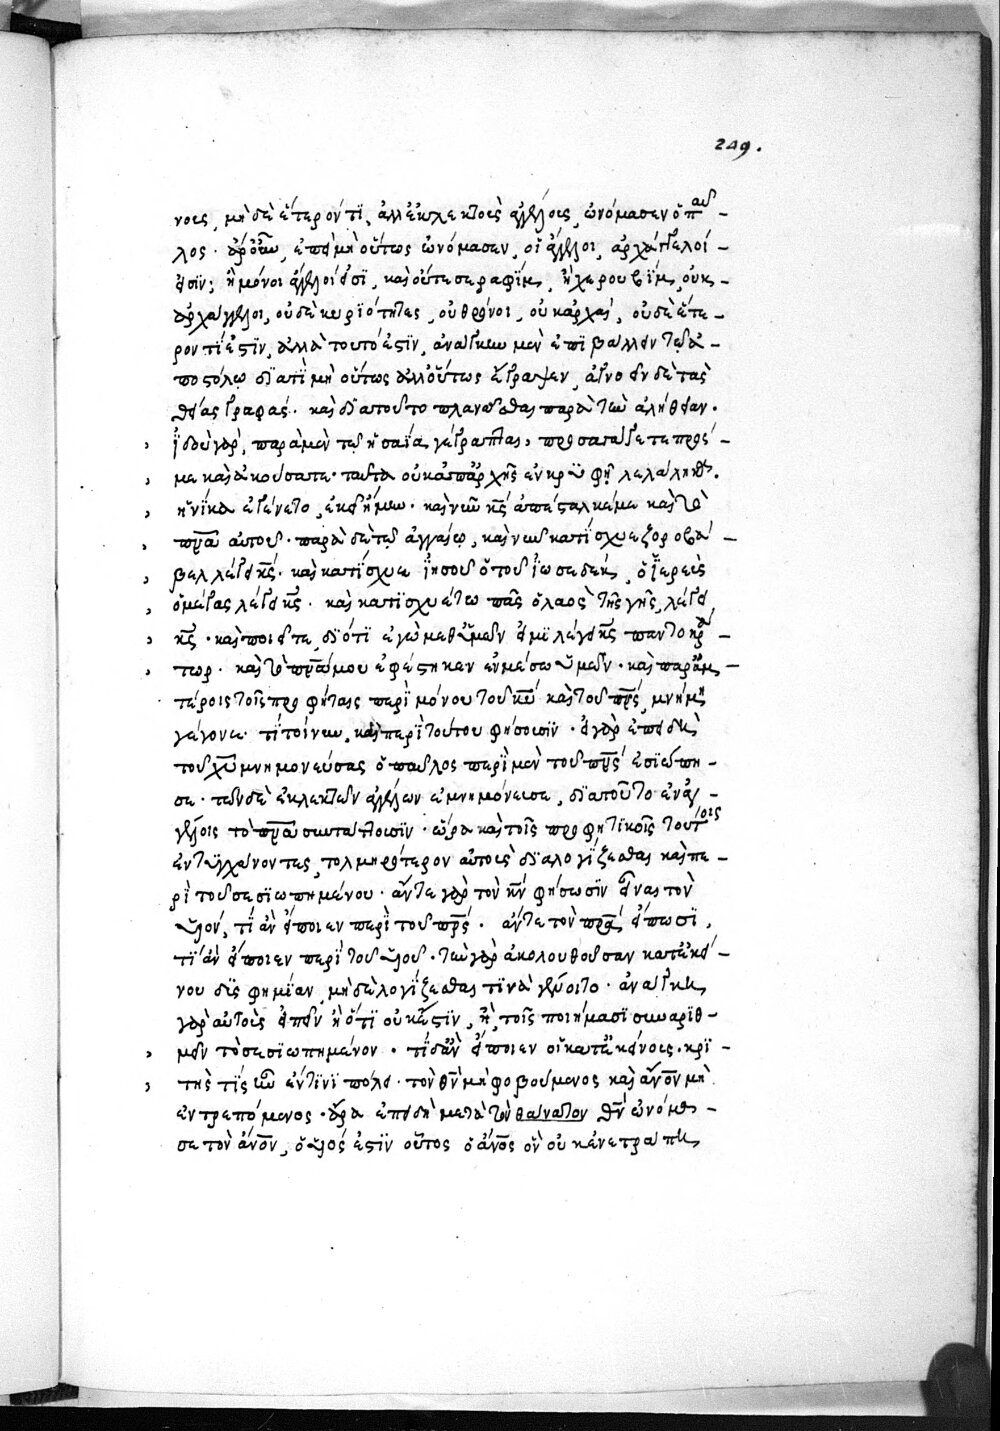 249.
νοις, μὴ δὲ ἕτερόν τϊ, ἀλλ ἐκλεκτοὺς ἀγγέλους, ὠνόμασεν ὁ παῦ –
λος· ἆρ οὖν, ἐπεὶ μὴ οὕτως ὠνόμασεν, οἱ ἄγγελοι, ἀρχάγγελοί –
εἰσϊν; ἢ μόνοι ἄγγελοι εἰσϊ, καὶ οὔτε σεραφὶμ, ἢ χερουβὶμ, οὐκ –
ἀρχάγγελοι, οὐδὲ κυριότητες, οὐ θρόνοι, οὐκ ἀρχαὶ, οὐδὲ ἕτε –
ρον τί ἐστϊν, ἀλλὰ τουτό ἐστϊν, ἀνάγκην μὲν ἐπϊβάλλειν τῷ ἀ –
ποστόλῳ διατὶ μὴ οὕτως ἀλλ οὕτως ἔγραψεν, ἀγνοεῖν δὲ τὰς
θείας γραφάς. καὶ διὰ τοῦτο πλανᾶσθαι παρὰ τὴν ἀλήθειαν.
ἰδοὺ γὰρ, παρὰ μὲν τῷ ἡσαΐα γέγραπται, προσαγάγετε πρός –
με καὶ ἀκούσατε· ταῦτα οὐκ ἀπαρχῆς ἐν κρυφῇ λελάληκα.
ἡνίκα ἐγένετο, ἐκεῖ ἤμην· καὶ νῦν κς ἀπέσταλκέ με καὶ τὸ
πνα αὐτοῦ· παρὰ δὲ τῷ ἀγγαίῳ, καὶ νῦν κατίσχυε ζοροβά –
βελ λέγει κς. καὶ κατίσχυε ἰησοῦ ὁ τοῦ ἰωσεδὲκ, ὁ ἱερεὺς
ὁ μέγας λέγει κς. καὶ κατισχυέτω πᾶς ὁ λαὸς τῆς γῆς, λέγει
κς· καὶ ποιεῖτε, διότι ἐγὼ μεθ ὑμῶν εἰμὶ λέγει κς παντοκρά –
τωρ. καὶ τὸ πνα μου ἐφέστηκεν ἐν μέσῳ ὑμῶν· καὶ παρ ἀμ –
τέροις τοῖς προφήταις περὶ μόνου τοῦ κυ καὶ τοῦ πνς, μνήμη
γέγονε· τί τοίνυν, καὶ περὶ τούτου φήσουσϊν· εἰ γὰρ ἐπειδὴ
τοῦ χυ μνημονεύσας ὁ παῦλος περὶ μὲν τοῦ πνς ἐσϊώπη –
σε· τῶν δὲ ἐκλεκτῶν ἀγγέλων ἐμνημόνευσε, διὰ τοῦτο ἐν ἀγ –
γέλοις τὸ πνα συντάττουσϊν· ὥρα καὶ τοῖς προφητϊκοῖς τούτοις
ἐντυγχάνοντας, τολμηρότερον αὐτοὺς διαλογίζεσθαι καὶ πε –
ρὶ τοῦ σεσϊωπημένου. ἄν τε γὰρ τὸν κν φήσωσϊν εἶναι τὸν
υἱόν, τί ἂν εἴποιεν περὶ τοῦ πρς. ἄν τε τὸν πρα εἴπωσϊ,
τί ἂν εἴποιεν περὶ τοῦ υἱοῦ· τὴν γὰρ ἀκολουθοῦσαν κατ ἐκεί –
νου δὶς φημίαν, μὴ δὲ λογίζεσθαι τϊνὰ γένοιτο· ἀνάγκη
γὰρ αὐτοὺς εἰπεῖν ἢ ὅτϊ οὐκ ἔστϊν, ἢ, τοῖς ποιήμασϊ συναριθ –
μεῖν τὸ σεσϊωπημένον. τί δ ἂν εἴποιεν οἱ κατ ἐκείνους. κρι –
τής τις ἦν ἔν τϊνϊ πόλει. τὸν θν μὴ φοβούμενος καὶ ἄνον μὴ
ἐντρεπόμενος. ἆρα ἐπειδὴ μετὰ τὸν θάνατον θν ὠνόμα –
σε τὸν ἄνον, ὁ υἱός ἐστϊν οὗτος ὁ ἄνος ὃν οὐκ ἐνετράπη